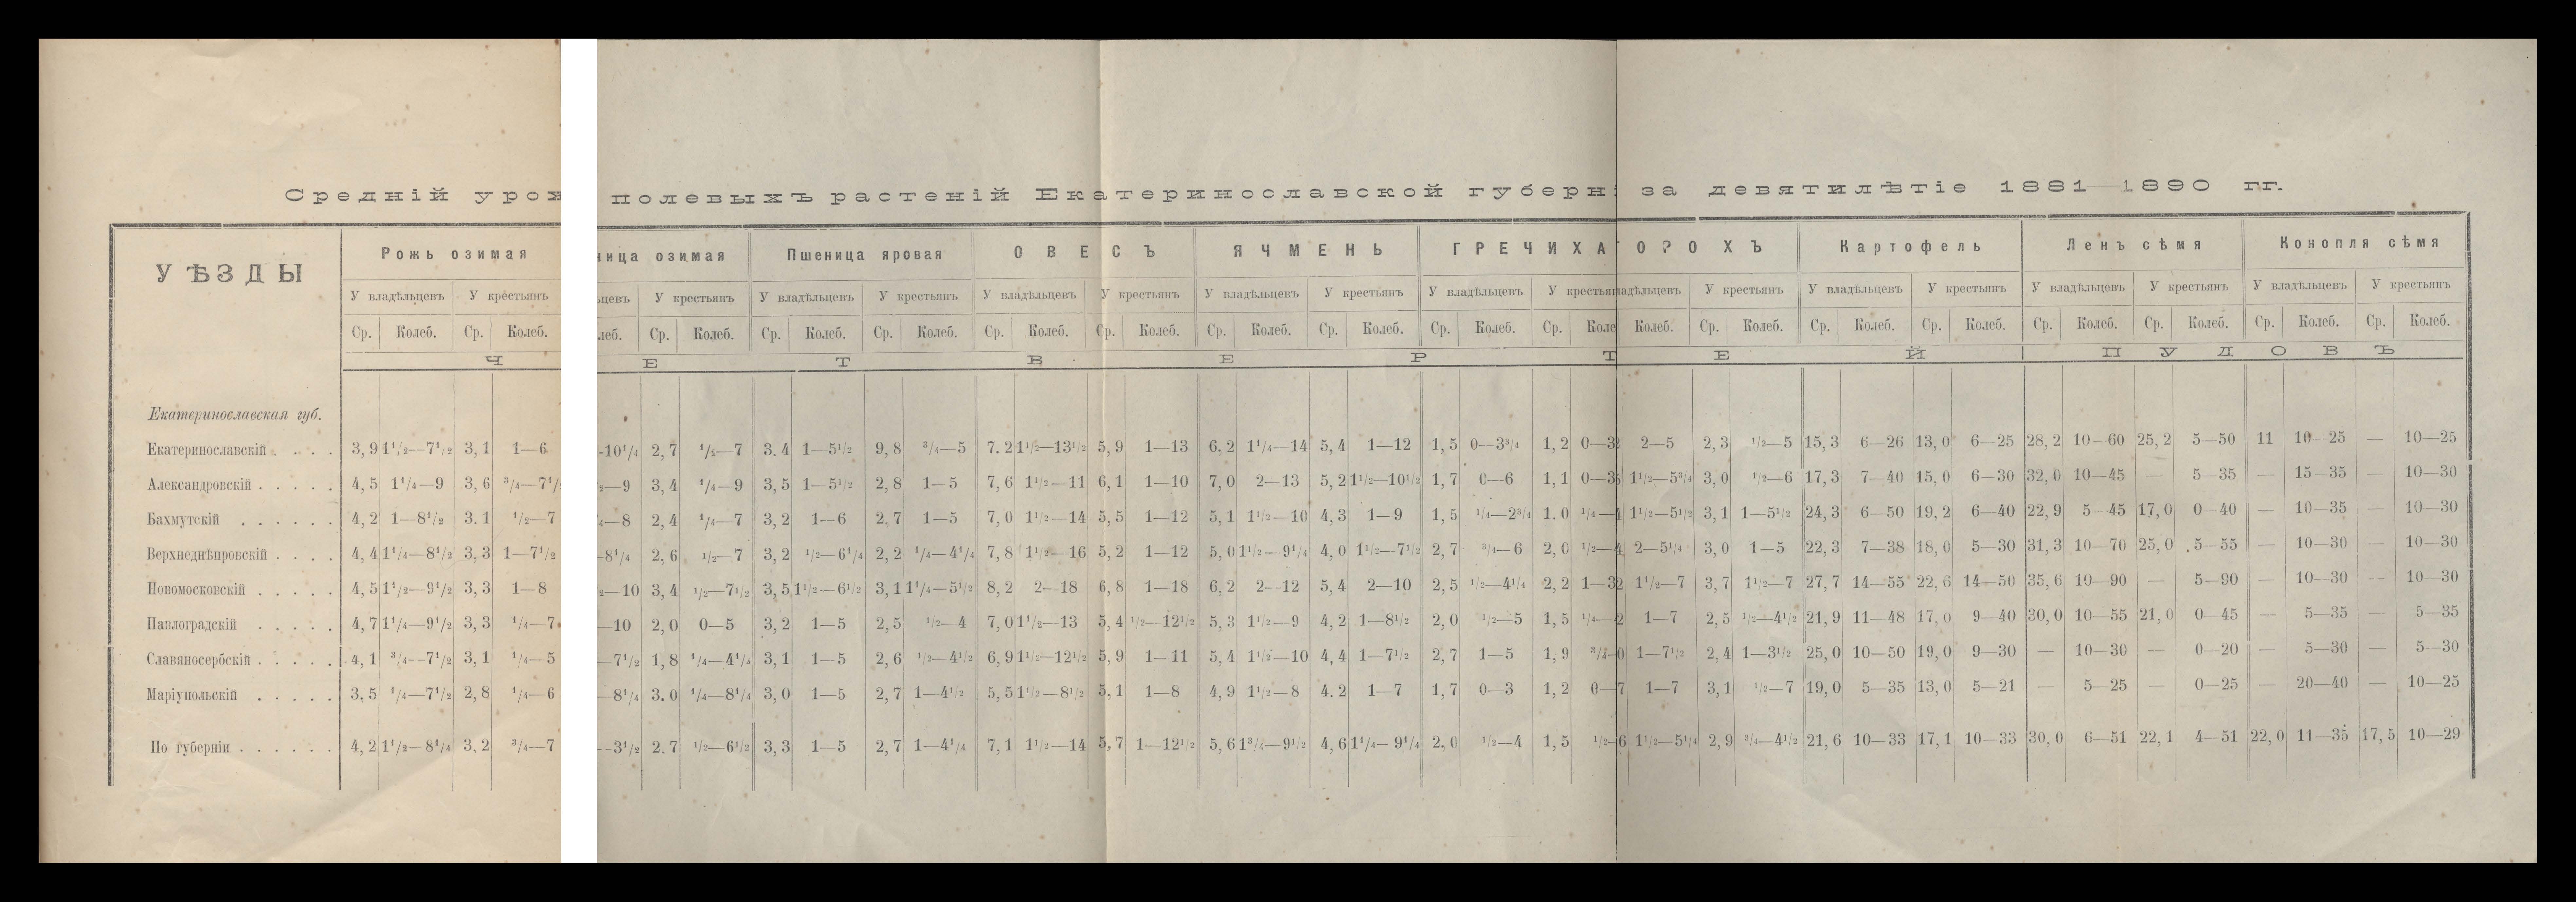 Средній урож полевыхъ растеній Екатеринославской губерні за девятилѣтіе 1881—1890 гг.
УѢЗДЫ Рожь озимая ница озимая Пшеница яровая ОВЕСЪ ЯЧМЕНЬ ГРЕЧИХА ОРОХЪ Картофель Ленъ сѣмя Конопля сѣмя
У владѣльцевъ У крестьянъ ьцевъ У крестьянъ У владѣльцевъ У крестьянъ У владѣльцевъ У крестьянъ У владѣльцевъ У крестьянъ У владѣльцевъ У крестьян адѣльцевъ У крестьянъ У владѣльцевъ У крестьянъ У владѣльцевъ У крестьянъ У владѣльцевъ У крестьянъ
Ср. Колеб. Ср. Колеб. леб. Ср. Колеб. Ср. Колеб. Ср. Колеб. Ср. Колеб. Ср. Колеб. Ср. Колеб. Ср. Колеб. Ср. Колеб. Ср. Коле Колеб. Ср. Колеб. Ср. Колеб. Ср. Колеб. Ср. Колеб. Ср. Колеб. Ср. Колеб. Ср. Колеб.
Ч Е Т В Е Р Т Е Й ПУДОВЪ
Екатеринославская губ.
Екатеринославскій . . . . 3,9 1¹/₂—7¹/₂ 3,1 1—6 -10¹/₄ 2,7 ¹/₂—7 3.4 1—5¹/₂ 9,8 ³/₄—5 7.2 1¹/₂—13¹/₂ 5,9 1—13 6,2 1¹/₄—14 5,4 1—12 1,5 0—3³/₄ 1,2 0—3 2—5 2,3 ¹/₂—5 15,3 6—26 13,0 6—25 28,2 10—60 25,2 5—50 11 10—25 — 10—25
Александровскій . . . . . 4,5 1¹/₄—9 3,6 ³/₄—7¹/₂ —9 3,4 ¹/₄—9 3,5 1—5¹/₂ 2,8 1—5 7,6 1¹/₂—11 6,1 1—10 7,0 2—13 5,2 1¹/₂—10¹/₂ 1,7 0—6 1,1 0—3 1¹/₂—5³/₄ 3,0 ¹/₂—6 17,3 7—40 15,0 6—30 32,0 10—45 — 5—35 — 15—35 — 10—30
Бахмутскій . . . . . . 4,2 1—8¹/₂ 3.1 ¹/₂—7 —8 2,4 ¹/₄—7 3,2 1—6 2,7 1—5 7,0 1¹/₂—14 5,5 1—12 5,1 1¹/₂—10 4,3 1—9 1,5 ¹/₄—2³/₄ 1.0 ¹/₄— 1¹/₂—5¹/₂ 3,1 1—5¹/₂ 24,3 6—50 19,2 6—40 22,9 5—45 17,0 0—40 — 10—35 — 10—30
Верхнеднѣпровскій . . . . 4,4 1¹/₄—8¹/₂ 3,3 1—7¹/₂ —8¹/₄ 2,6 ¹/₂—7 3,2 ¹/₂—6¹/₄ 2,2 ¹/₄—4¹/₄ 7,8 1¹/₂—16 5,2 1—12 5,0 1¹/₂—9¹/₄ 4,0 1¹/₂—7¹/₂ 2,7 ³/₄—6 2,0 ¹/₂— 2—5¹/₄ 3,0 1—5 22,3 7—38 18,0 5—30 31,3 10—70 25,0 5—55 — 10—30 — 10—30
Новомосковскій . . . . . 4,5 1¹/₂—9¹/₂ 3,3 1—8 —10 3,4 ¹/₂—7¹/₂ 3,5 1¹/₂—6¹/₂ 3,1 1¹/₄—5¹/₂ 8,2 2—18 6,8 1—18 6,2 2—12 5,4 2—10 2,5 ¹/₂—4¹/₄ 2,2 1—3 1¹/₂—7 3,7 1¹/₂—7 27,7 14—55 22,6 14—50 35,6 10—90 — 5—90 — 10—30 — 10—30
Павлоградскій . . . . . 4,7 1¹/₄—9¹/₂ 3,3 ¹/₄—7 —10 2,0 0—5 3,2 1—5 2,5 ¹/₂—4 7,0 1¹/₂—13 5,4 ¹/₂—12¹/₂ 5,3 1¹/₂—9 4,2 1—8¹/₂ 2,0 ¹/₂—5 1,5 ¹/₄— 1—7 2,5 ¹/₂—4¹/₂ 21,9 11—48 17,0 9—40 30,0 10—55 21,0 0—45 — 5—35 — 5—35
Славяносербскій . . . . . 4,1 ³/₄—7¹/₂ 3,1 ¹/₄—5 —7¹/₂ 1,8 ¹/₄—4¹/₄ 3,1 1—5 2,6 ¹/₂—4¹/₂ 6,9 1¹/₂—12¹/₂ 5,9 1—11 5,4 1¹/₂—10 4,4 1—7¹/₂ 2,7 1—5 1,9 ³/₄— 1—7¹/₂ 2,4 1—3¹/₂ 25,0 10—50 19,0 9—30 — 10—30 — 0—20 — 5—30 — 5—30
Маріупольскій . . . . . 3,5 ¹/₄—7¹/₂ 2,8 ¹/₄—6 —8¹/₄ 3.0 ¹/₄—8¹/₄ 3,0 1—5 2,7 1—4¹/₂ 5,5 1¹/₂—8¹/₂ 5,1 1—8 4,9 1¹/₂—8 4.2 1—7 1,7 0—3 1,2 0— 1—7 3,1 ¹/₂—7 19,0 5—35 13,0 5—21 — 5—25 — 0—25 — 20—40 — 10—25
По губерніи . . . . . . 4,2 1¹/₂—8¹/₄ 3,2 ³/₄—7 —3¹/₂ 2.7 ¹/₂—6¹/₂ 3,3 1—5 2,7 1—4¹/₄ 7,1 1¹/₂—14 5,7 1—12¹/₂ 5,6 1³/₄—9¹/₂ 4,6 1¹/₄—9¹/₄ 2,0 ¹/₂—4 1,5 ¹/₂— 1¹/₂—5¹/₄ 2,9 ³/₄—4¹/₂ 21,6 10—33 17,1 10—33 30,0 6—51 22,1 4—51 22,0 11—35 17,5 10—29